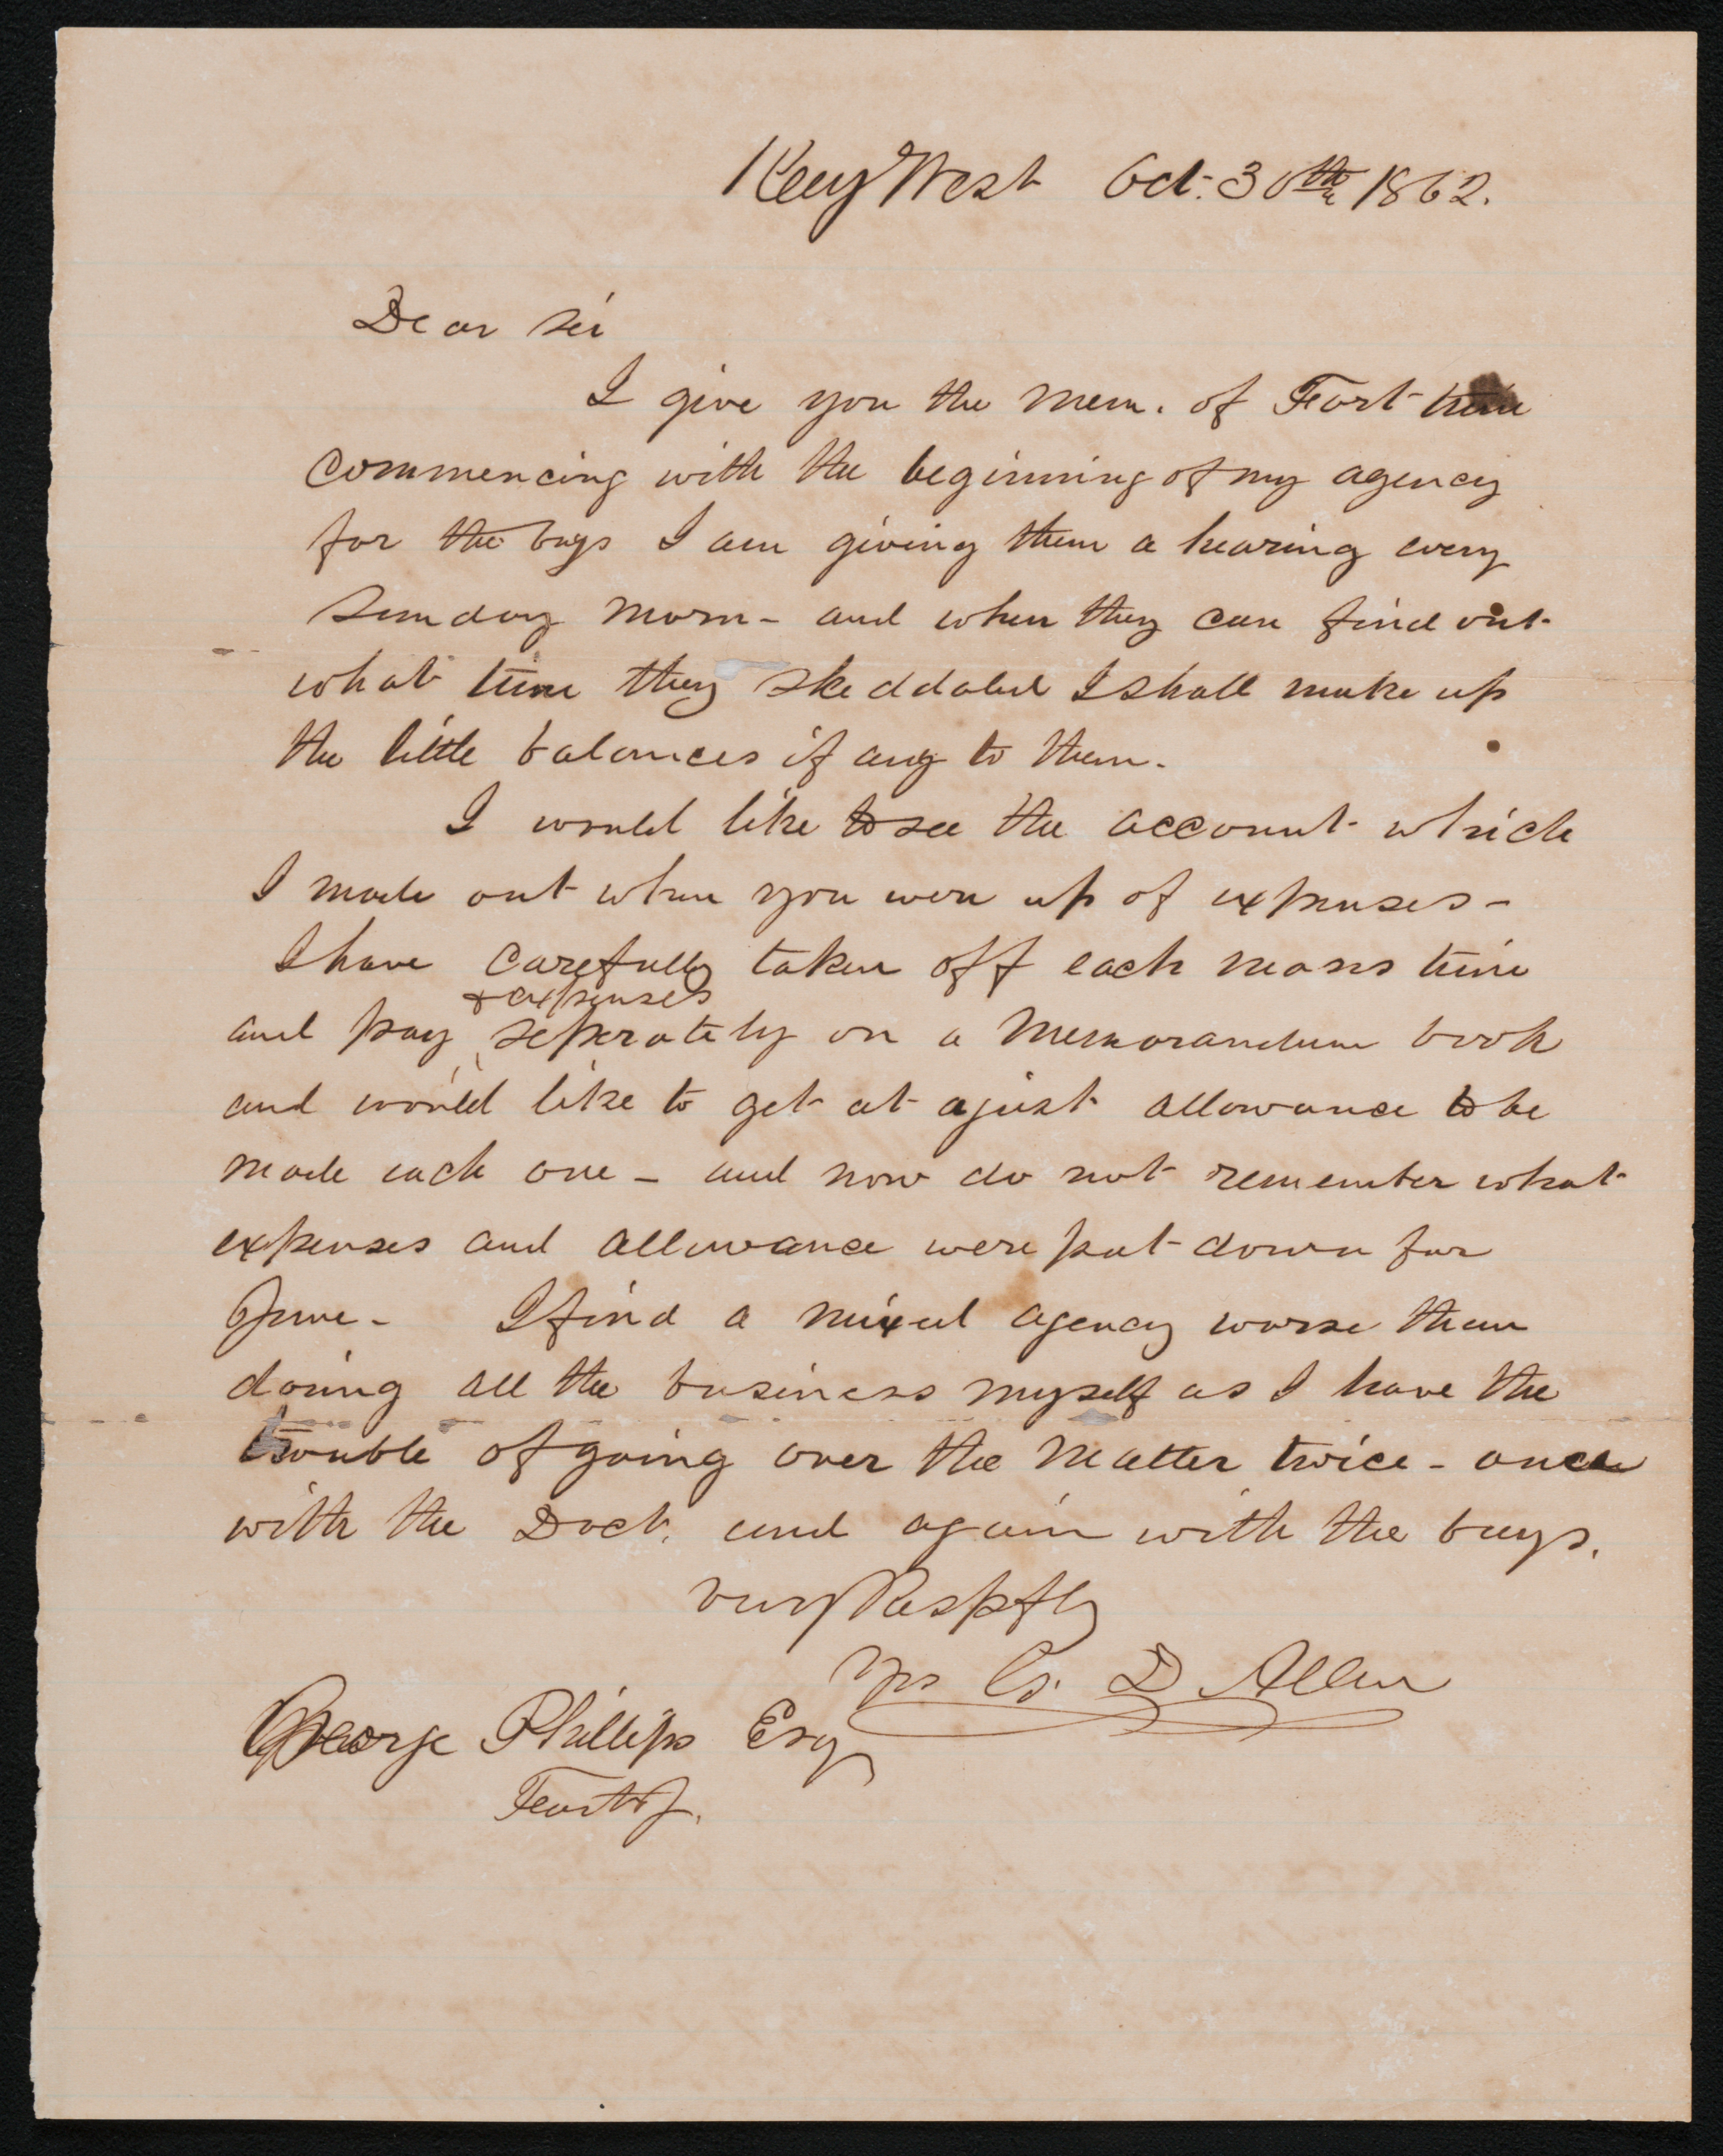 Key West Oct. 30th 1862.
Dear Sir
I give you the mem. of Fort time
commencing with the beginning of my agency
for the boys I am giving them a hearing every
Sunday morn - and when they can find out
what time they skeddaled I shall make up
the little balances if any to them.
I would like to see the account which
I made out when you were up of expenses -
I have carefully taken off each mans time
& expenses
and pay seperately on a memorandum book
and would like to get at a just allowance to be
made each one - and now do not remember what
expenses and allowance were put down for
June - I find a mixed agency worse than
doing all the business myself as I have the
trouble of going over the matter twice - once
with the Doct. and again with the boys.
Very Respfly
Yrs C. D Allen
George Phillips Esq
Fort J.